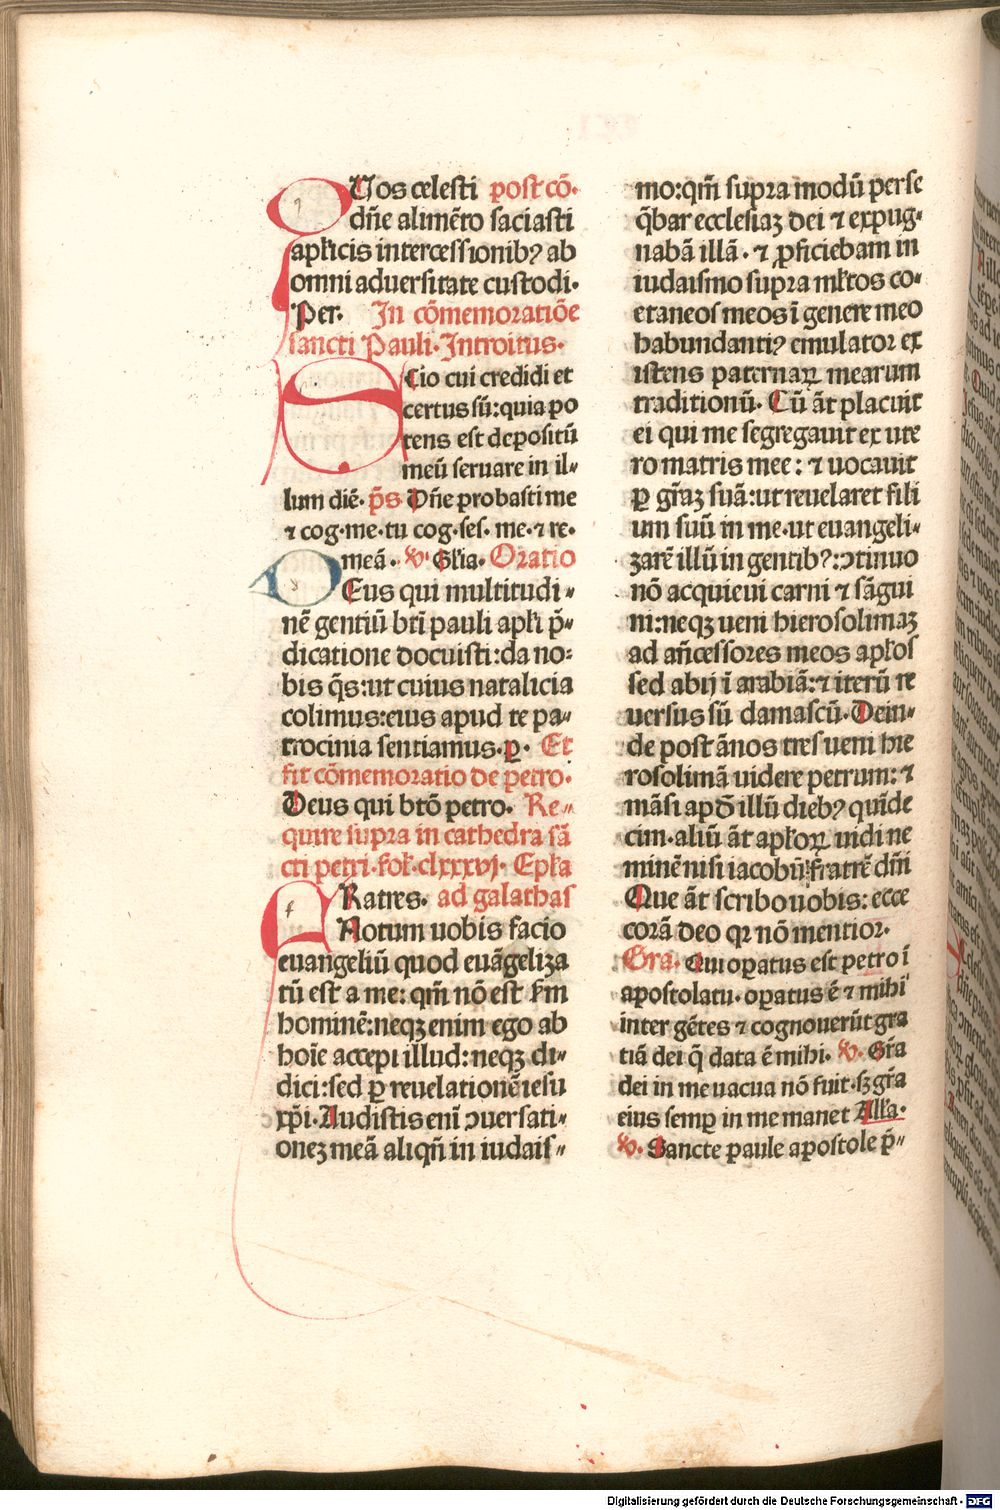 QUos celesti post cō·
dn̄e alimēto saciasti
apl̄icis intercessionibꝰ ab
omni aduersitate custodi·
Per. In cōmemoratiōe
sancti Pauli·Introitus·
SCio cui credidi et
certus sū:quia po
tens est depositū
meū seruare in il⸗
lum diē· p̄s Dn̄e probasti me
⁊ cog·me·tu cog·ses· me·⁊ re·
meā· ꝟ· Gl̄ia· Oratio
DEus qui multitudi⸗
nē gentiū bt̄i pauli apl̄i p̄⸗
dicatione docuisti:da no⸗
bis q̄s:ut cuius natalicia
colimus:eius apud te pa⸗
trocinia sentiamus·p· Et
fit cōmemoratio de petro·
Deus qui btō petro· Re⸗
quire supra in cathedra sā
cti petri·fol·clxxxvj· Epl̄a
FRatres· ad galathas
Notum uobis facio
euangeliū quod euāgeliza
tū est a me: qm̄ nō est scd̄m
hominē:neqꝫ enim ego ab
hoīe accepi illud:neqꝫ di⸗
dici:sed ꝑ reuelationē iesu
xp̄i·Audistis enī ꝯuersati⸗
oneꝫ meā aliqn̄ in iudais⸗
mo:qm̄ supra modū perse
q̄bar ecclesiaꝫ dei ⁊ expug⸗
nabā illā· ⁊ ꝓficiebam in
iudaismo supra ml̄tos co⸗
etaneos meos ī genere meo
habundantiꝰ emulator ex
istens paternaꝝ mearum
traditionū· Cū āt placuit
ei qui me segregauit ex ute
ro matris mee: ⁊ uocauit
ꝑ grāꝫ suā:ut reuelaret fili
um suū in me·ut euangeli⸗
zarē illū in gentibꝰ:ꝯtinuo
nō acquieui carni ⁊ sāgui
ni:neqꝫ ueni hierosolimaꝫ
ad añcessores meos apl̄os
sed abij ī arabiā:⁊ iterū re
uersus sū damascū·Dein⸗
de post ānos tres ueni hie
rosolimā uidere petrum: ⁊
māsi apd̄ illū diebꝰ quīde
cim·aliū āt apl̄oꝝ uidi ne
minē nisi iacobū fratrē dn̄i
Que āt scribo uobis: ecce
corā deo qꝛ nō mentior·
Gra· Qui oꝑatus est petro ī
apostolatu·oꝑatus ē ⁊ mihi
inter gētes ⁊ cognouerūt gra
tiā dei q̄ data ē mihi· ꝟ· Grā
dei in me uacua nō fuit·sꝫ grā
eius semꝑ in me manet All̄a·
ꝟ· Sancte paule apostole p̄⸗
Digitalisierung gefördert durch die Deutsche Forschungsgemeinschaft - DFG